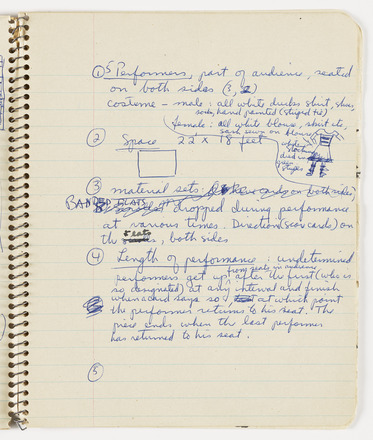 ① 5 Performers, part of audience, seated
on both sides (3, 2)
costume – male: all white ducks shirt, shoes,
socks, hand painted (striped tie)
female: all white blouse, skirt etc,
sash sewn on blouse
② Space 22 x 18 feet
stockings
died in
stripes
③ material sets: on both sides,
BANDED SEATS dropped during performance
at various times. Direction (score cards) on
the seats, both sides
④ Length of performance: undetermined
from seats in audience
performers get up after the first (who is
so designated) at any interval and finish
when a card says so at which point
the performer returns to his seat. The
piece ends when the last performer
has returned to his seat.
⑤